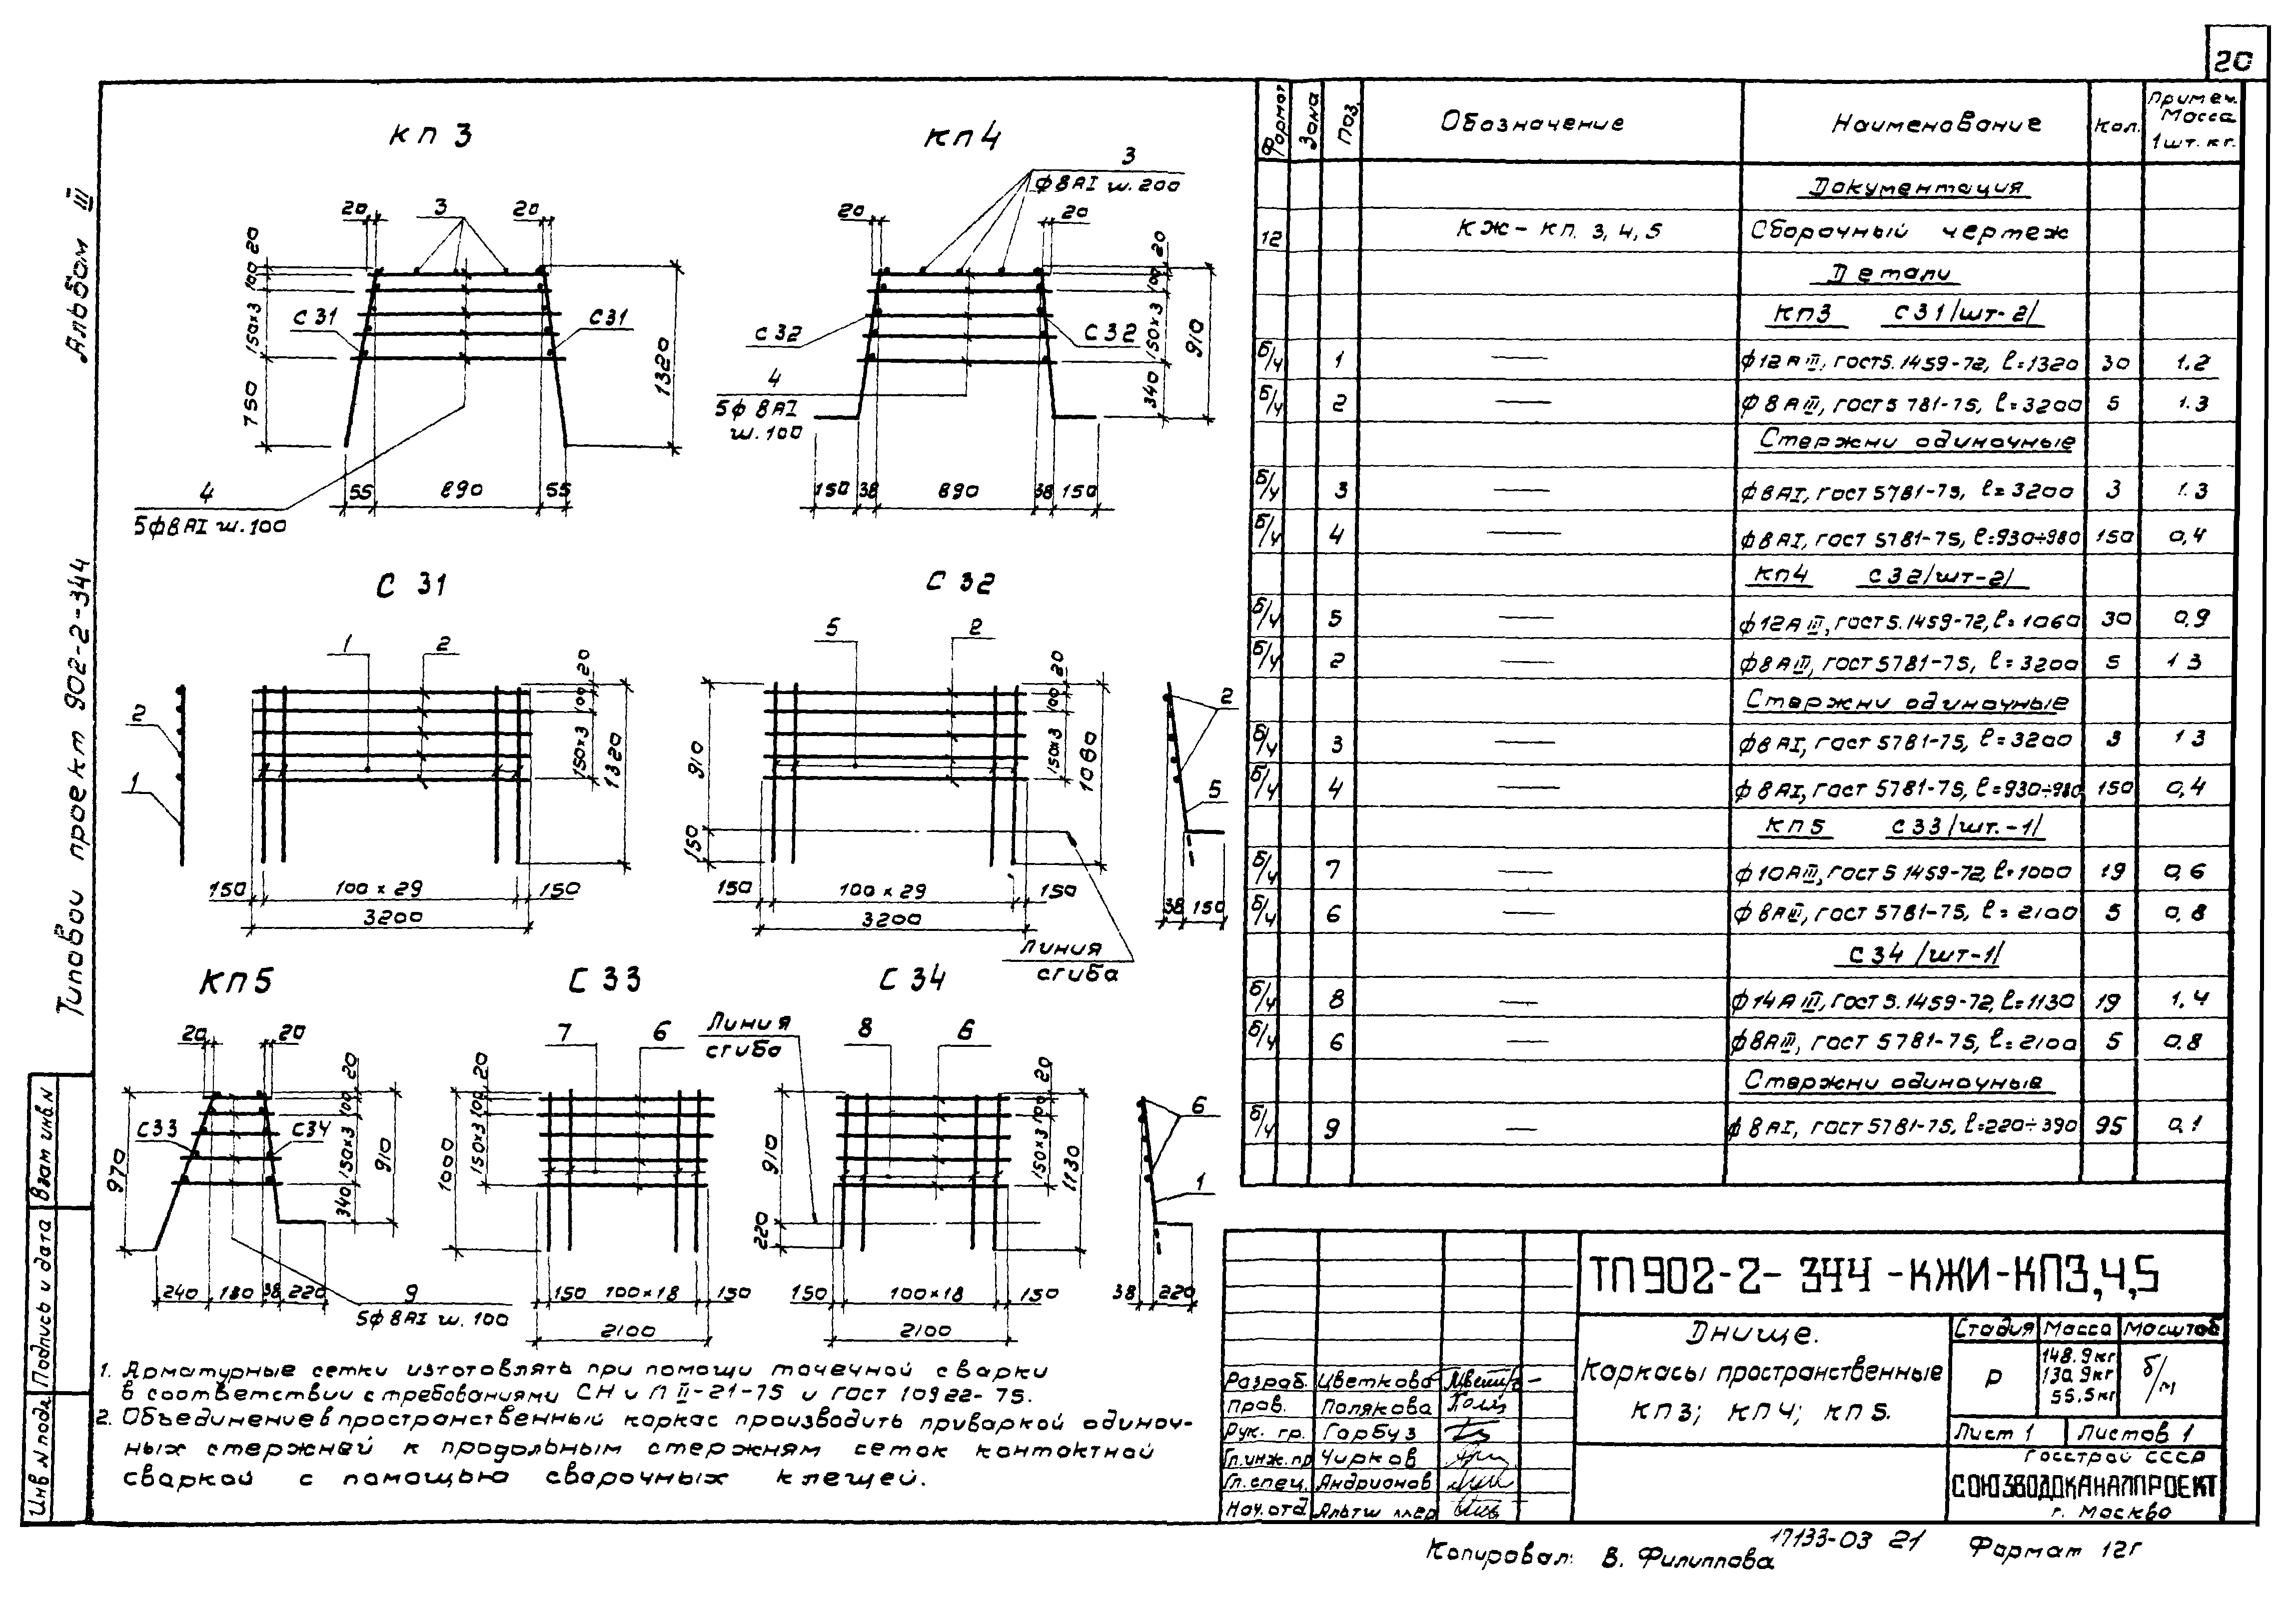 20
Альбом III
Типовой проект 902-2-344
Взам инв.N
Подпись и дата
Инв N подл.
КП 3
20
3
20
20
100
150х3
750
С 31
С 31
1320
4
5ф8АI ш.100
55
890
55
КП4
3
ф8АI ш.200
20
20
20
100
150х3
340
910
С 32
С 32
4
5ф 8АI
ш.100
150
38
890
38
150
С 31
1
2
2
1
20
100
150х3
1320
150
100 х 29
150
3200
С 32
5
2
910
150
20
100
150х3
1060
150
100 х 29
150
3200
Линия
сгиба
2
5
38
150
КП5
20
20
20
100
150х3
340
910
970
С33
С34
240
180
38
220
9
5ф 8АI ш.100
С 33
7
6
20
100
150х3
1000
150
100х18
150
2100
С 34
Линия
сгиба
8
6
910
220
20
100
150х3
1130
150
100х18
150
2100
6
1
38
220
1. Арматурные сетки изготовлять при помощи точечной сварки
в соответствии с требованиями СН и П II-21-75 и гост 10922-75.
2. Объединение в пространственный каркас производить приваркой одиноч-
ных стержней к продольным стержням сеток контактной
сваркой с помощью сварочных клещей.
Формат Зона Поз. Обозначение Наименование Кол. Примеч. Масса 1шт. кг.
Документация
12 КЖ- КП. 3, 4, 5 Сборочный чертеж
Детали
КП3 С 31/шт-2/
б/ч 1 — ф12А III, гост5.1459-72, ℓ=1320 30 1.2
б/ч 2 — ф 8А III, гост5 781-75, ℓ=3200 5 1.3
Стержни одиночные
б/ч 3 — ф8АI, гост 5781-75, ℓ=3200 3 1.3
б/ч 4 — ф8АI, гост 5781-75, ℓ=930÷980 150 0,4
КП4 С 32/шт-2/
б/ч 5 — ф12А III, гост5.1459-72, ℓ=1060 30 0,9
б/ч 2 — ф8А III, гост 5781-75, ℓ=3200 5 1 3
Стержни одиночные
б/ч 3 — ф8АI, гост 5781-75, ℓ=3200 3 1 3
б/ч 4 — ф 8АI, гост 5781-75, ℓ=930÷980 150 0,4
КП5 С 33/шт.-1/
б/ч 7 — ф10АIII, гост 5 1459-72, ℓ=1000 19 0,6
б/ч 6 — ф 8АIII, гост 5781-75, ℓ=2100 5 0,8
С 34 /шт-1/
б/ч 8 — ф14А III, гост 5.1459-72, ℓ=1130 19 1,4
б/ч 6 — ф8АIII, гост 5781-75, ℓ=2100 5 0.8
Стержни одиночные
б/ч 9 — ф 8АI, гост 5781-75, ℓ=220÷390 95 0,1
ТП902-2-344-КЖИ-КП3,4,5
Днище.
Каркасы пространственные
КП3; КП4; КП5.
Стадия Масса Масштаб
Р
148.9кг
130.9кг
55.5кг
б/м
Лист 1 Листов 1
Госстрой СССР
СОЮЗВОДОКАНАЛПРОЕКТ
г. Москва
Разраб. Цветкова
Пров. Полякова
Рук. гр. Горбуз
Гл.инж.пр Чирков
Гл.спец. Андрианов
Нач.отд Альтшуллер
Копировал: В. Филиппова
17133-03 21
Формат 12г